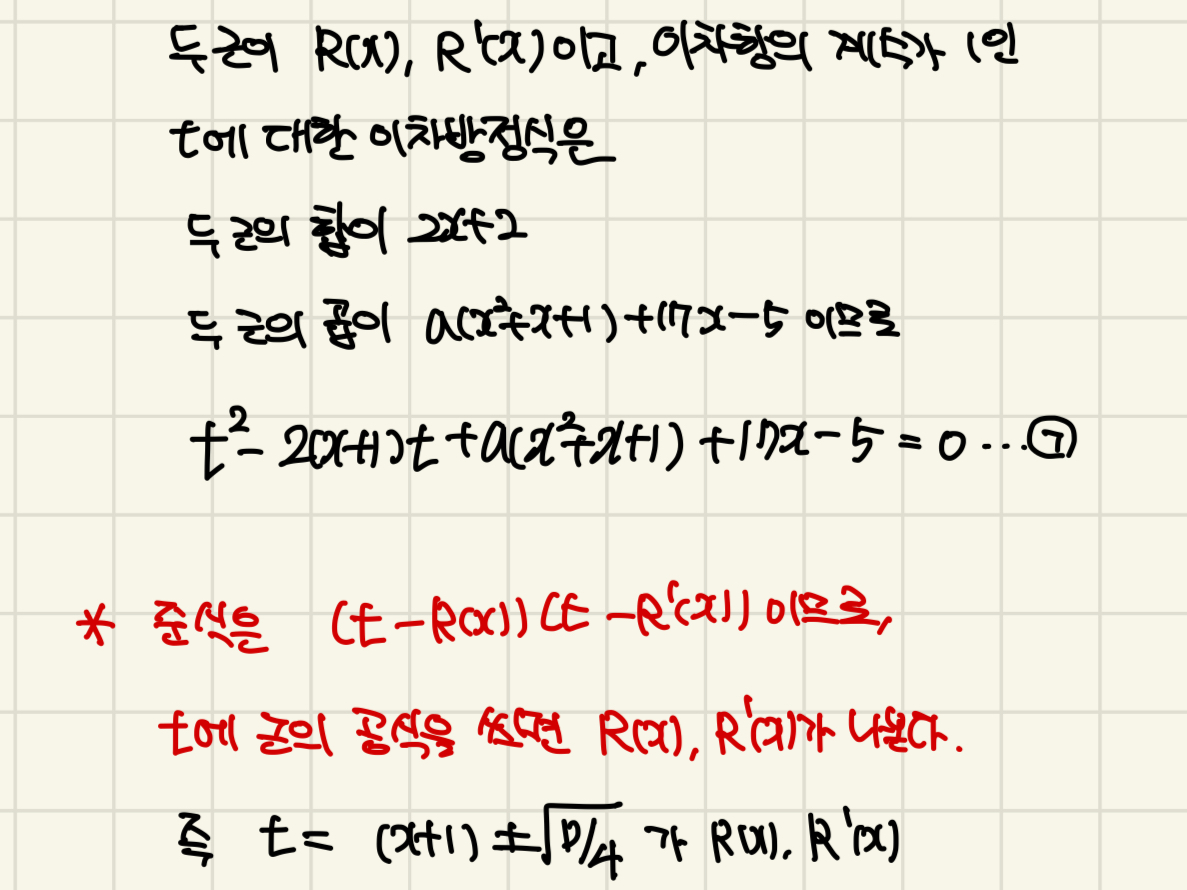 두 근이 R(x), R'(x)이고, 이차항의 계수가 1인
t에 대한 이차방정식은
두 근의 합이 2x+2
두 근의 곱이 a(x²+x+1)+17x-5 이므로
t²-2(x+1)t+a(x²+x+1)+17x-5=0 …㉠
* 준식은 (t-R(x))(t-R'(x)) 이므로,
t에 근의 공식을 쓰면 R(x), R'(x)가 나온다.
즉 t= (x+1)±√D/4 가 R(x), R'(x)